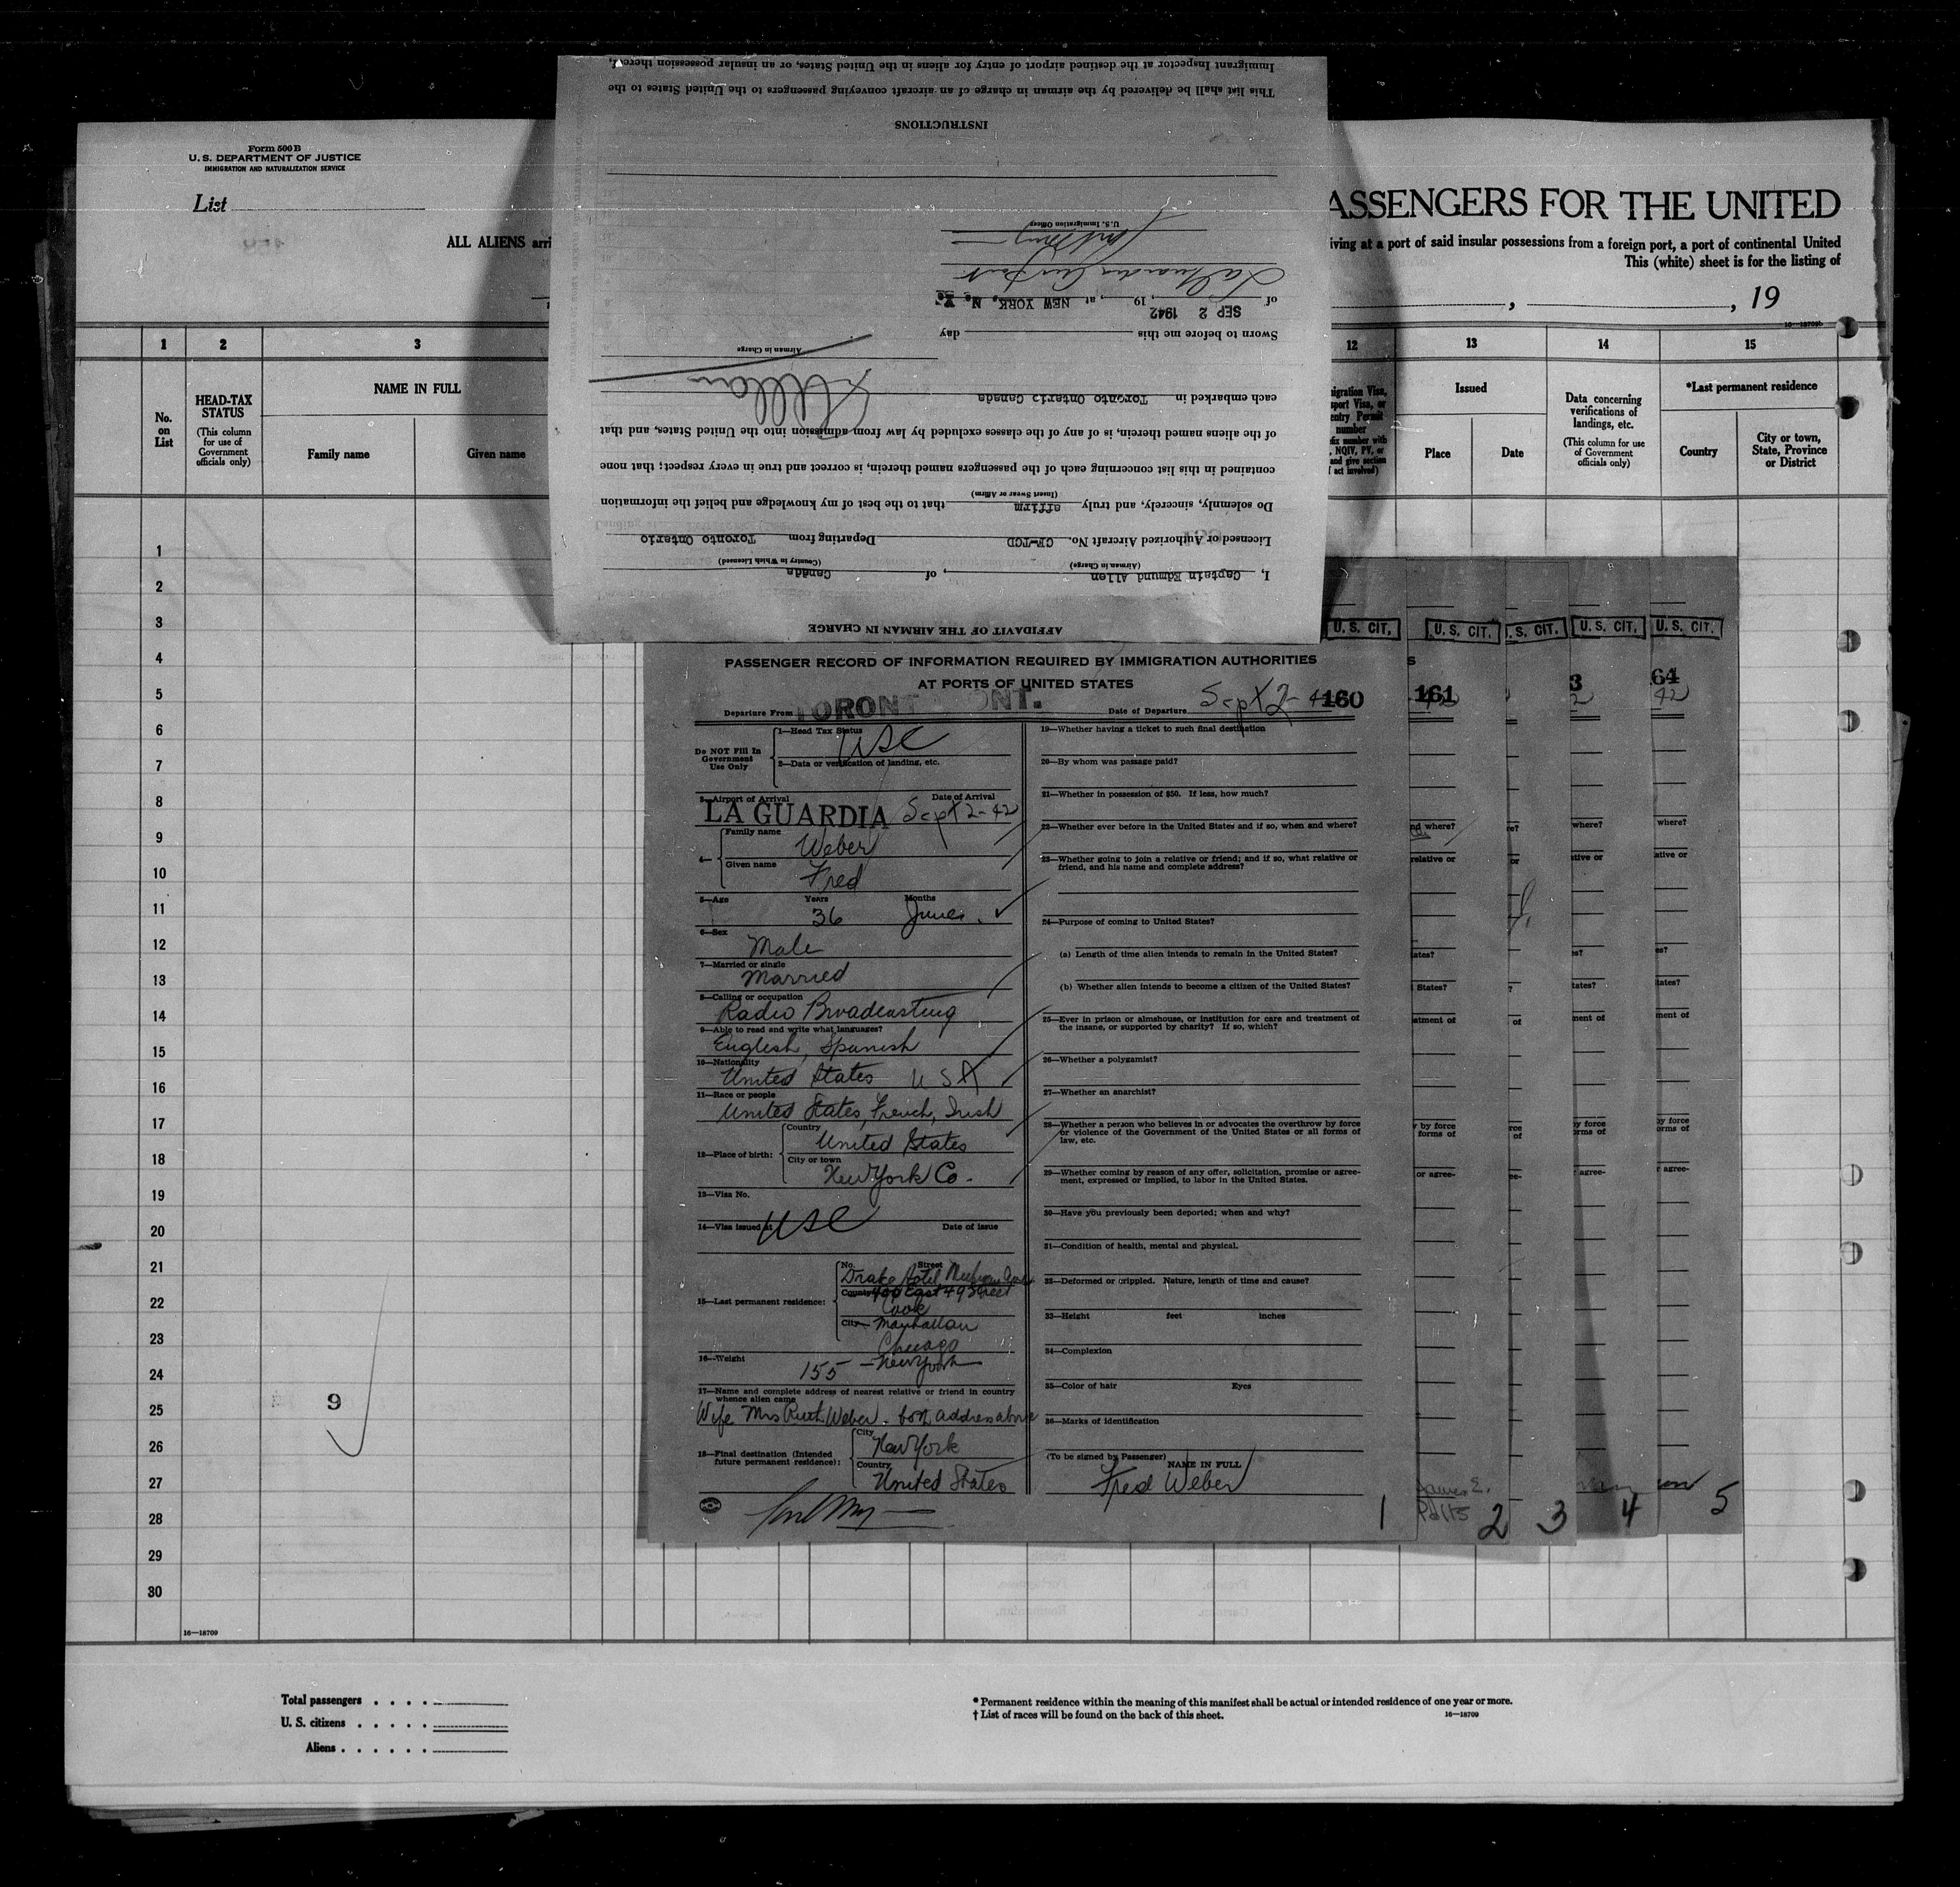 Form 500 B
U. S. DEPARTMENT OF JUSTICE
IMMIGRATION AND NATURALIZATION SERVICE
List
ALL ALIENS arri
ASSENGERS FOR THE UNITED
iving at a port of said insular possessions from a foreign port, a port of continental United
This (white) sheet is for the listing of
, , 19
16—18709b
1 2 3
No. on List
HEAD-TAX STATUS
(This column for use of Government officials only)
NAME IN FULL
Family name Given name
12 13 14 15
migration Visa,
sport Visa, or
entry Permit
number
fix number with
, NQIV, PV, or
and give section
f act involved)
Issued
Place Date
Data concerning verifications of landings, etc.
(This column for use of Government officials only)
*Last permanent residence
Country
City or town, State, Province or District
1
2
3
4
5
6
7
8
9
10
11
12
13
14
15
16
17
18
19
20
21
22
23
24
25
26
27
28
29
30
9
16—18709
AFFIDAVIT OF THE AIRMAN IN CHARGE
I, Captain Edmund Allen, of Canada
(Airman in Charge) (Country in Which Licensed)
Licensed or Authorized Aircraft No. CF-TCD Departing from Toronto Ontario
Do solemnly, sincerely, and truly affirm that to the best of my knowledge and belief the information
(Insert Swear or Affirm)
contained in this list concerning each of the passengers named therein, is correct and true in every respect; that none
of the aliens named therein, is of any of the classes excluded by law from admission into the United States, and that
each embarked in Toronto Ontario Canada
Airman in Charge
Sworn to before me this day
SEP 2 1942
of , 19 , at NEW YORK, N. Y.
U. S. Immigration Officer
INSTRUCTIONS
This list shall be delivered by the airman in charge of an aircraft conveying passengers to the United States to the
Immigrant Inspector at the destined airport of entry for aliens in the United States, or an insular possession thereof,
PASSENGER RECORD OF INFORMATION REQUIRED BY IMMIGRATION AUTHORITIES
AT PORTS OF UNITED STATES
Departure From TORONT ONT. Date of Departure Sept 2-4 160
Do NOT Fill In Government Use Only
1—Head Tax Status
USC
2—Data or verification of landing, etc.
3—Airport of Arrival Date of Arrival
LA GUARDIA Sept 2-42
4— Family name
Weber
Given name
Fred
5—Age Years Months
36 June
6—Sex
Male
7—Married or single
Married
8—Calling or occupation
Radio Broadcasting
9—Able to read and write what languages?
English, Spanish
10—Nationality
United States USA
11—Race or people
United States, French, Irish
12—Place of birth:
Country
United States
City or town
New York Co.
13—Visa No.
14—Visa issued at Date of issue
USC
15—Last permanent residence:
No. Street
Drake Hotel
County 400 East 49 Street
Cook
City Manhattan
Chicago
New York
16—Weight
155
17—Name and complete address of nearest relative or friend in country
whence alien came
Wife Mrs Ruth Weber address above
18—Final destination (Intended
future permanent residence):
City
New York
Country
United States
19—Whether having a ticket to such final destination
20—By whom was passage paid?
21—Whether in possession of $50. If less, how much?
22—Whether ever before in the United States and if so, when and where?
23—Whether going to join a relative or friend; and if so, what relative or
friend, and his name and complete address?
24—Purpose of coming to United States?
(a) Length of time alien intends to remain in the United States?
(b) Whether alien intends to become a citizen of the United States?
25—Ever in prison or almshouse, or institution for care and treatment of
the insane, or supported by charity? If so, which?
26—Whether a polygamist?
27—Whether an anarchist?
28—Whether a person who believes in or advocates the overthrow by force
or violence of the Government of the United States or all forms of
law, etc.
29—Whether coming by reason of any offer, solicitation, promise or agree-
ment, expressed or implied, to labor in the United States.
30—Have you previously been deported; when and why?
31—Condition of health, mental and physical.
32—Deformed or crippled. Nature, length of time and cause?
33—Height feet inches
34—Complexion
35—Color of hair Eyes
36—Marks of identification
(To be signed by Passenger) NAME IN FULL
Fred Weber
1 2 3 4 5
U. S. CIT. U. S. CIT. . S. CIT. U. S. CIT. U. S. CIT.
161 3 64
42 2 42
nd where? re? where? where?
relative or or ative or ative or
ates? es? ates?
States? ? tates? tates?
atment of of ment of ment of
y by force rce y force by force
forms of of orms of orms of
or agree- ee- r agree- r agree-
James E.
Total passengers . . . .
U. S. citizens . . . . .
Aliens . . . . . .
* Permanent residence within the meaning of this manifest shall be actual or intended residence of one year or more.
† List of races will be found on the back of this sheet.
16—18709